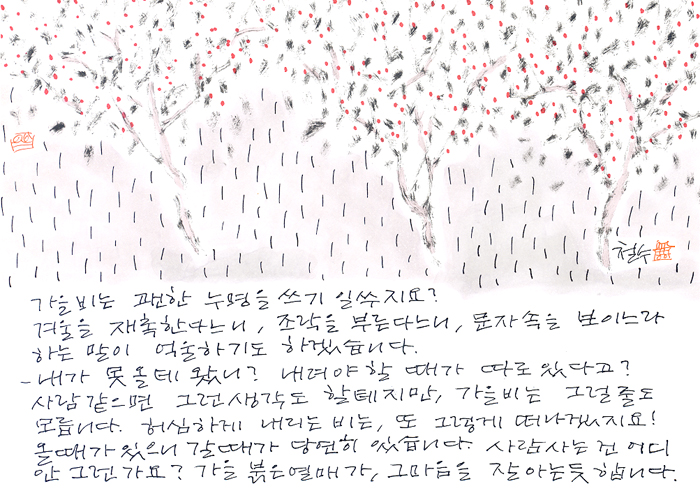 철수
가을비는 괜한 누명을 쓰기 일쑤지요?
겨울을 재촉한다느니, 조락을 부른다느니, 문자속을 보이느라
하는 말이 억울하기도 하겠습니다.
- 내가 못올데 왔니? 내려야 할 때가 따로 있다고?
사람 같으면 그런 생각도 할테지만, 가을비는 그럴 줄도
모릅니다. 허심하게 내리는 비는, 또 그렇게 떠나겠지요!
올때가 있으니 갈때가 당연히 있습니다. 사람사는건 어디
안 그런가요? 가을 붉은열매가, 그마음을 잘 아는듯 합니다.